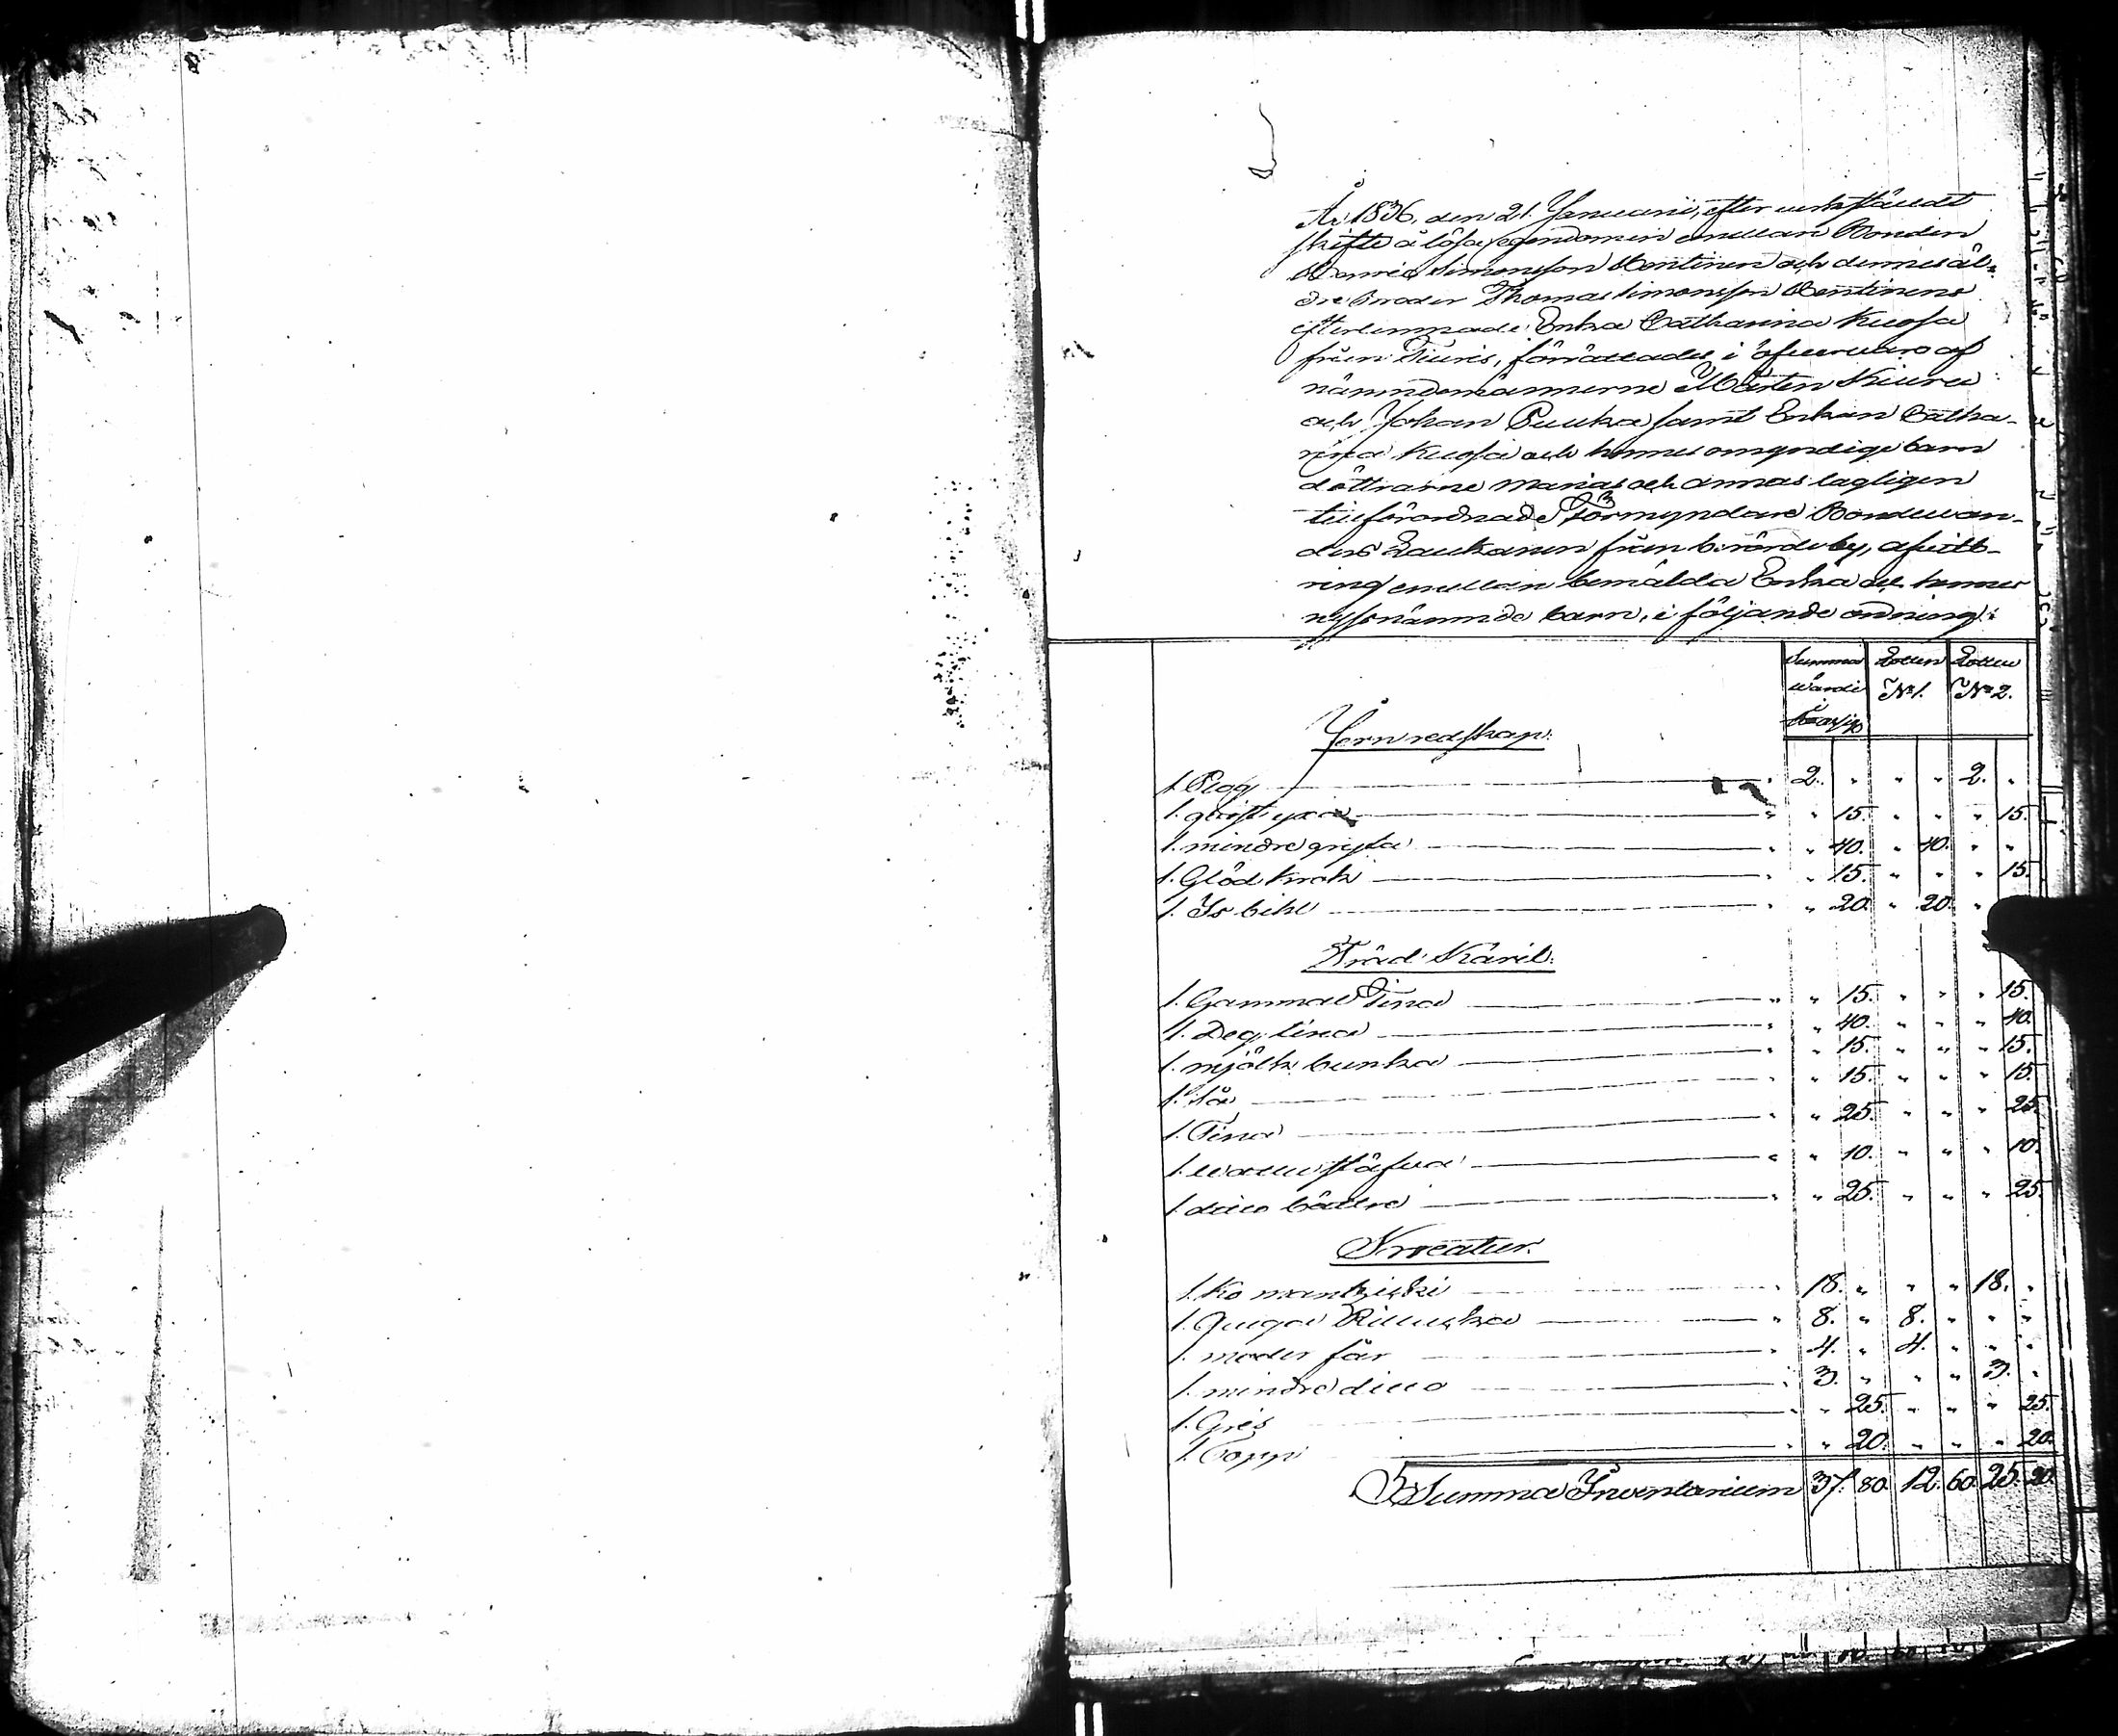 År 1836, den 21 Januarii, efter verkstäldt
skifte å lösa egendomen emellan Bonden
Henric Simonsson Kontinen och dennes äl-
dre broder Thomas Simonsson Kontinens
efterlemnade Enka Catharina Kuosa
från Tiuris, förrättades i öfvervaro af
nämndemännerne Mårten Kiuru
och Johan Puukka samt Enkan Catha-
rina Kuosa och hennes omyndige barn
döttrarne Marias och Annas lagligen
tillförordnade Förmyndare Bonden An-
ders Laukanen från berörde by, afvitt-
ring emellan bemälda Enka och hennes
nyssnämnde barn, i följande ordning:
Summa Lotten Lotten
värde N:o 1. N:o 2.
Jernredskap:
1. Plog 2. " " " 2. "
1. qvist yxa " 15. " " " 15.
1. mindre gryta " 40. " 40. " "
1. Glöd krok " 15. " " " 15.
1. Is bihl " 20. " 20. "
Träd Käril:
1. Gammal Tina " 15. " " " 15.
1. Deg tina " 40. " " " 40.
1. mjölk bunka " 15. " " " 15.
1. Så " 15. " " " 15.
1. Tina " 25. " " " 25.
1. stäfva " 10. " " " 10.
1. ditto bättre " 25. " " " 25.
Kreatur.
1. Ko mansikki 18. " " " 18. "
1. Quiga 8. " 8. " " "
1. moder får 4. " 4. " " "
1. mindre ditto 3. " " " 3. "
1. Gris " 25. " " " 25.
1. Topp " 20. " " " 20.
Summa Inventarium 37. 80. 12. 60. 25. 20.